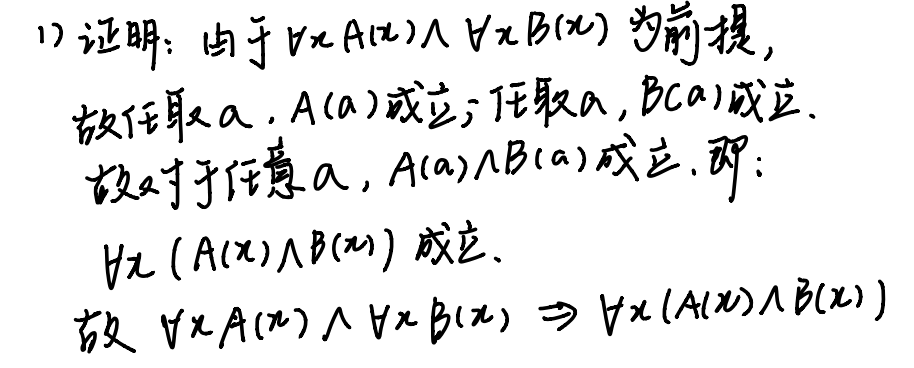 1) 证明: 由于 ∀x A(x) ∧ ∀x B(x) 为前提,
故任取 a, A(a) 成立; 任取 a, B(a) 成立.
故对于任意 a, A(a) ∧ B(a) 成立. 即:
∀x (A(x) ∧ B(x)) 成立.
故 ∀x A(x) ∧ ∀x B(x) ⇒ ∀x (A(x) ∧ B(x))